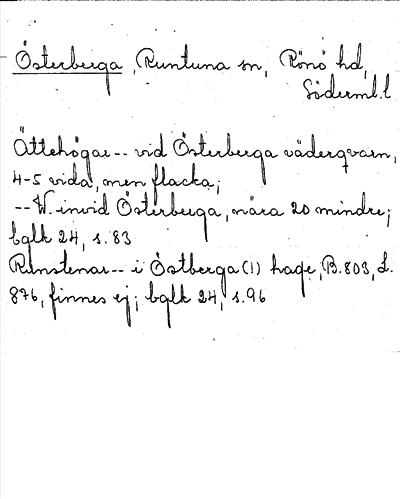 Österberga, Runtuna sn, Rönö hd,
Söderml. l
Ättehögar -- vid Österberga väderqvarn,
4-5 vida, men flacka;
-- W. invid Österberga, nära 20 mindre;
bglk 24, s. 83
Runstenar -- i Östberga (!) hage, B. 803, L.
876, finnes ej; bglk 24, s. 96